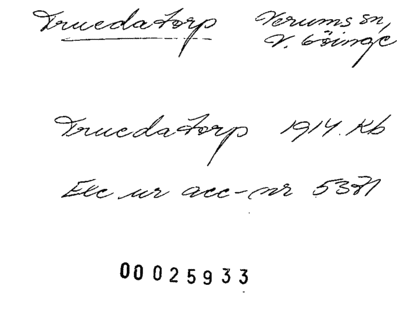 Truedatorp Verums sn,
V. Göinge
Truedatorp 1914. Kb
Exc ur acc-nr 5381
00 025933